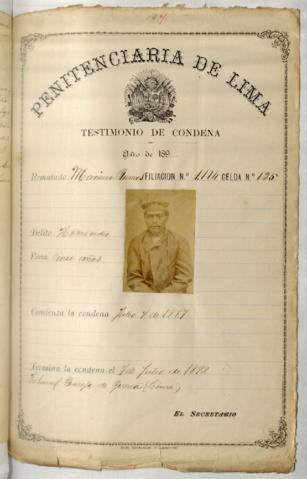 PENITENCIARIA DE LIMA
TESTIMONIO DE CONDENA
Año de 189
Rematado Mariano FILIACION N.º 1,114 CELDA N.º 125
Delito Homicidio
Pena Cinco años
Comienza la condena Julio 7 de 1887
Termina la condena el 7 de Julio de 1892
Tribunal Consejo de Guerra
EL SECRETARIO